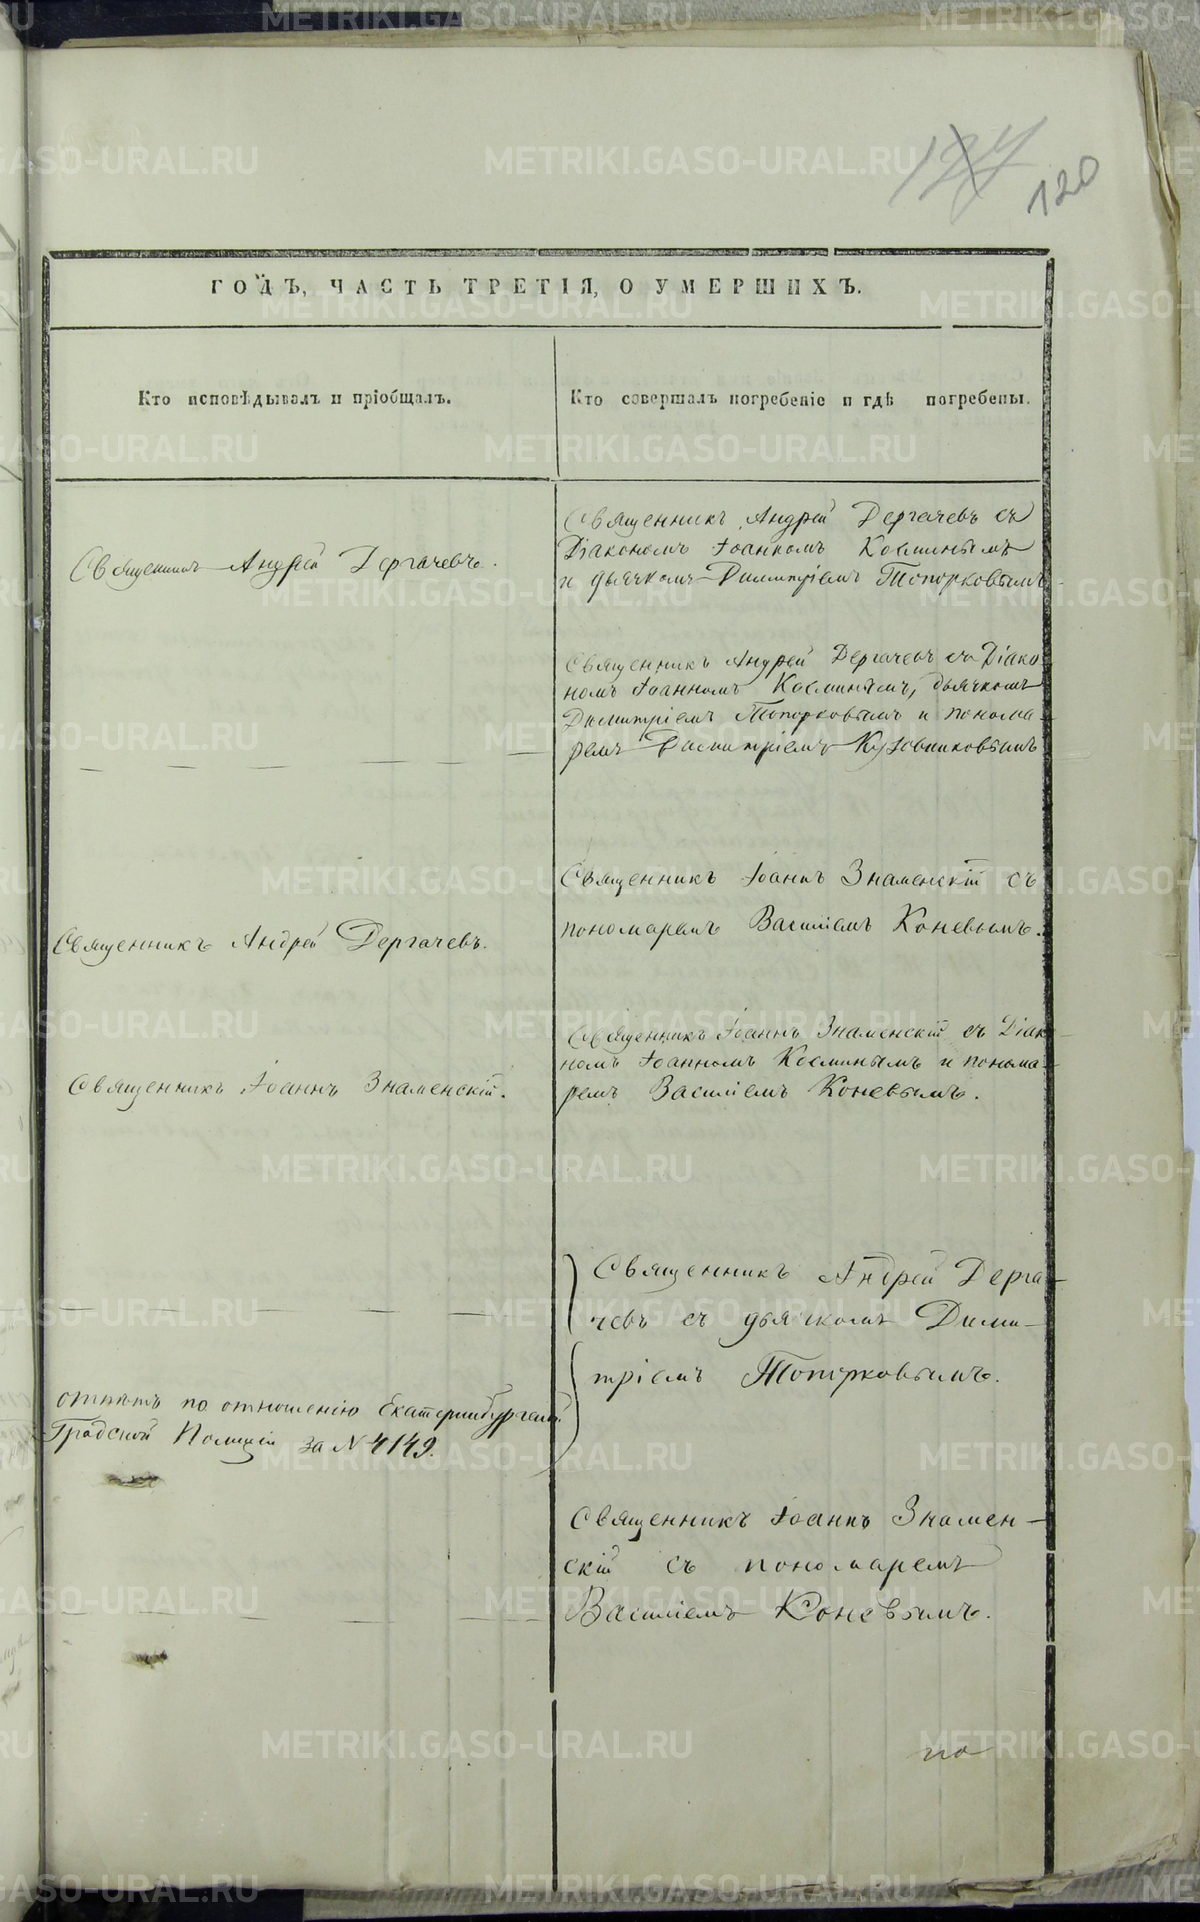 127
120
ГОДЪ, ЧАСТЬ ТРЕТІЯ, О УМЕРШИХЪ.
Кто исповѣдывалъ и пріобщалъ.
Кто совершалъ погребеніе и гдѣ погребены.
Священникъ Андрей Дергачевъ.
Священникъ Андрей Дергачевъ съ
Діакономъ Іоанномъ Косминымъ
и дьячкомъ Димитріемъ Топорковымъ
Священникъ Андрей Дергачевъ съ Діако
номъ Іоанномъ Косминымъ, дьячкомъ
Димитріемъ Топорковымъ и понома-
ремъ Димитріемъ Кузовниковымъ
Священникъ Андрей Дергачевъ.
Священникъ Іоаннъ Знаменскій съ
пономаремъ Василіемъ Коневымъ.
Священникъ Іоаннъ Знаменскій.
Священникъ Іоаннъ Знаменскій съ Діако-
номъ Іоанномъ Косминымъ и понома-
ремъ Василіемъ Коневымъ.
Священникъ Андрей Дерга-
чевъ съ дьячкомъ Дими-
тріемъ Топорковымъ.
отпѣтъ по отношенію Екатеринбургской
Градской Полиціи за № 4149.
Священникъ Іоаннъ Знамен-
скій съ пономаремъ
Василіемъ Коневымъ.
по
METRIKI.GASO-URAL.RU